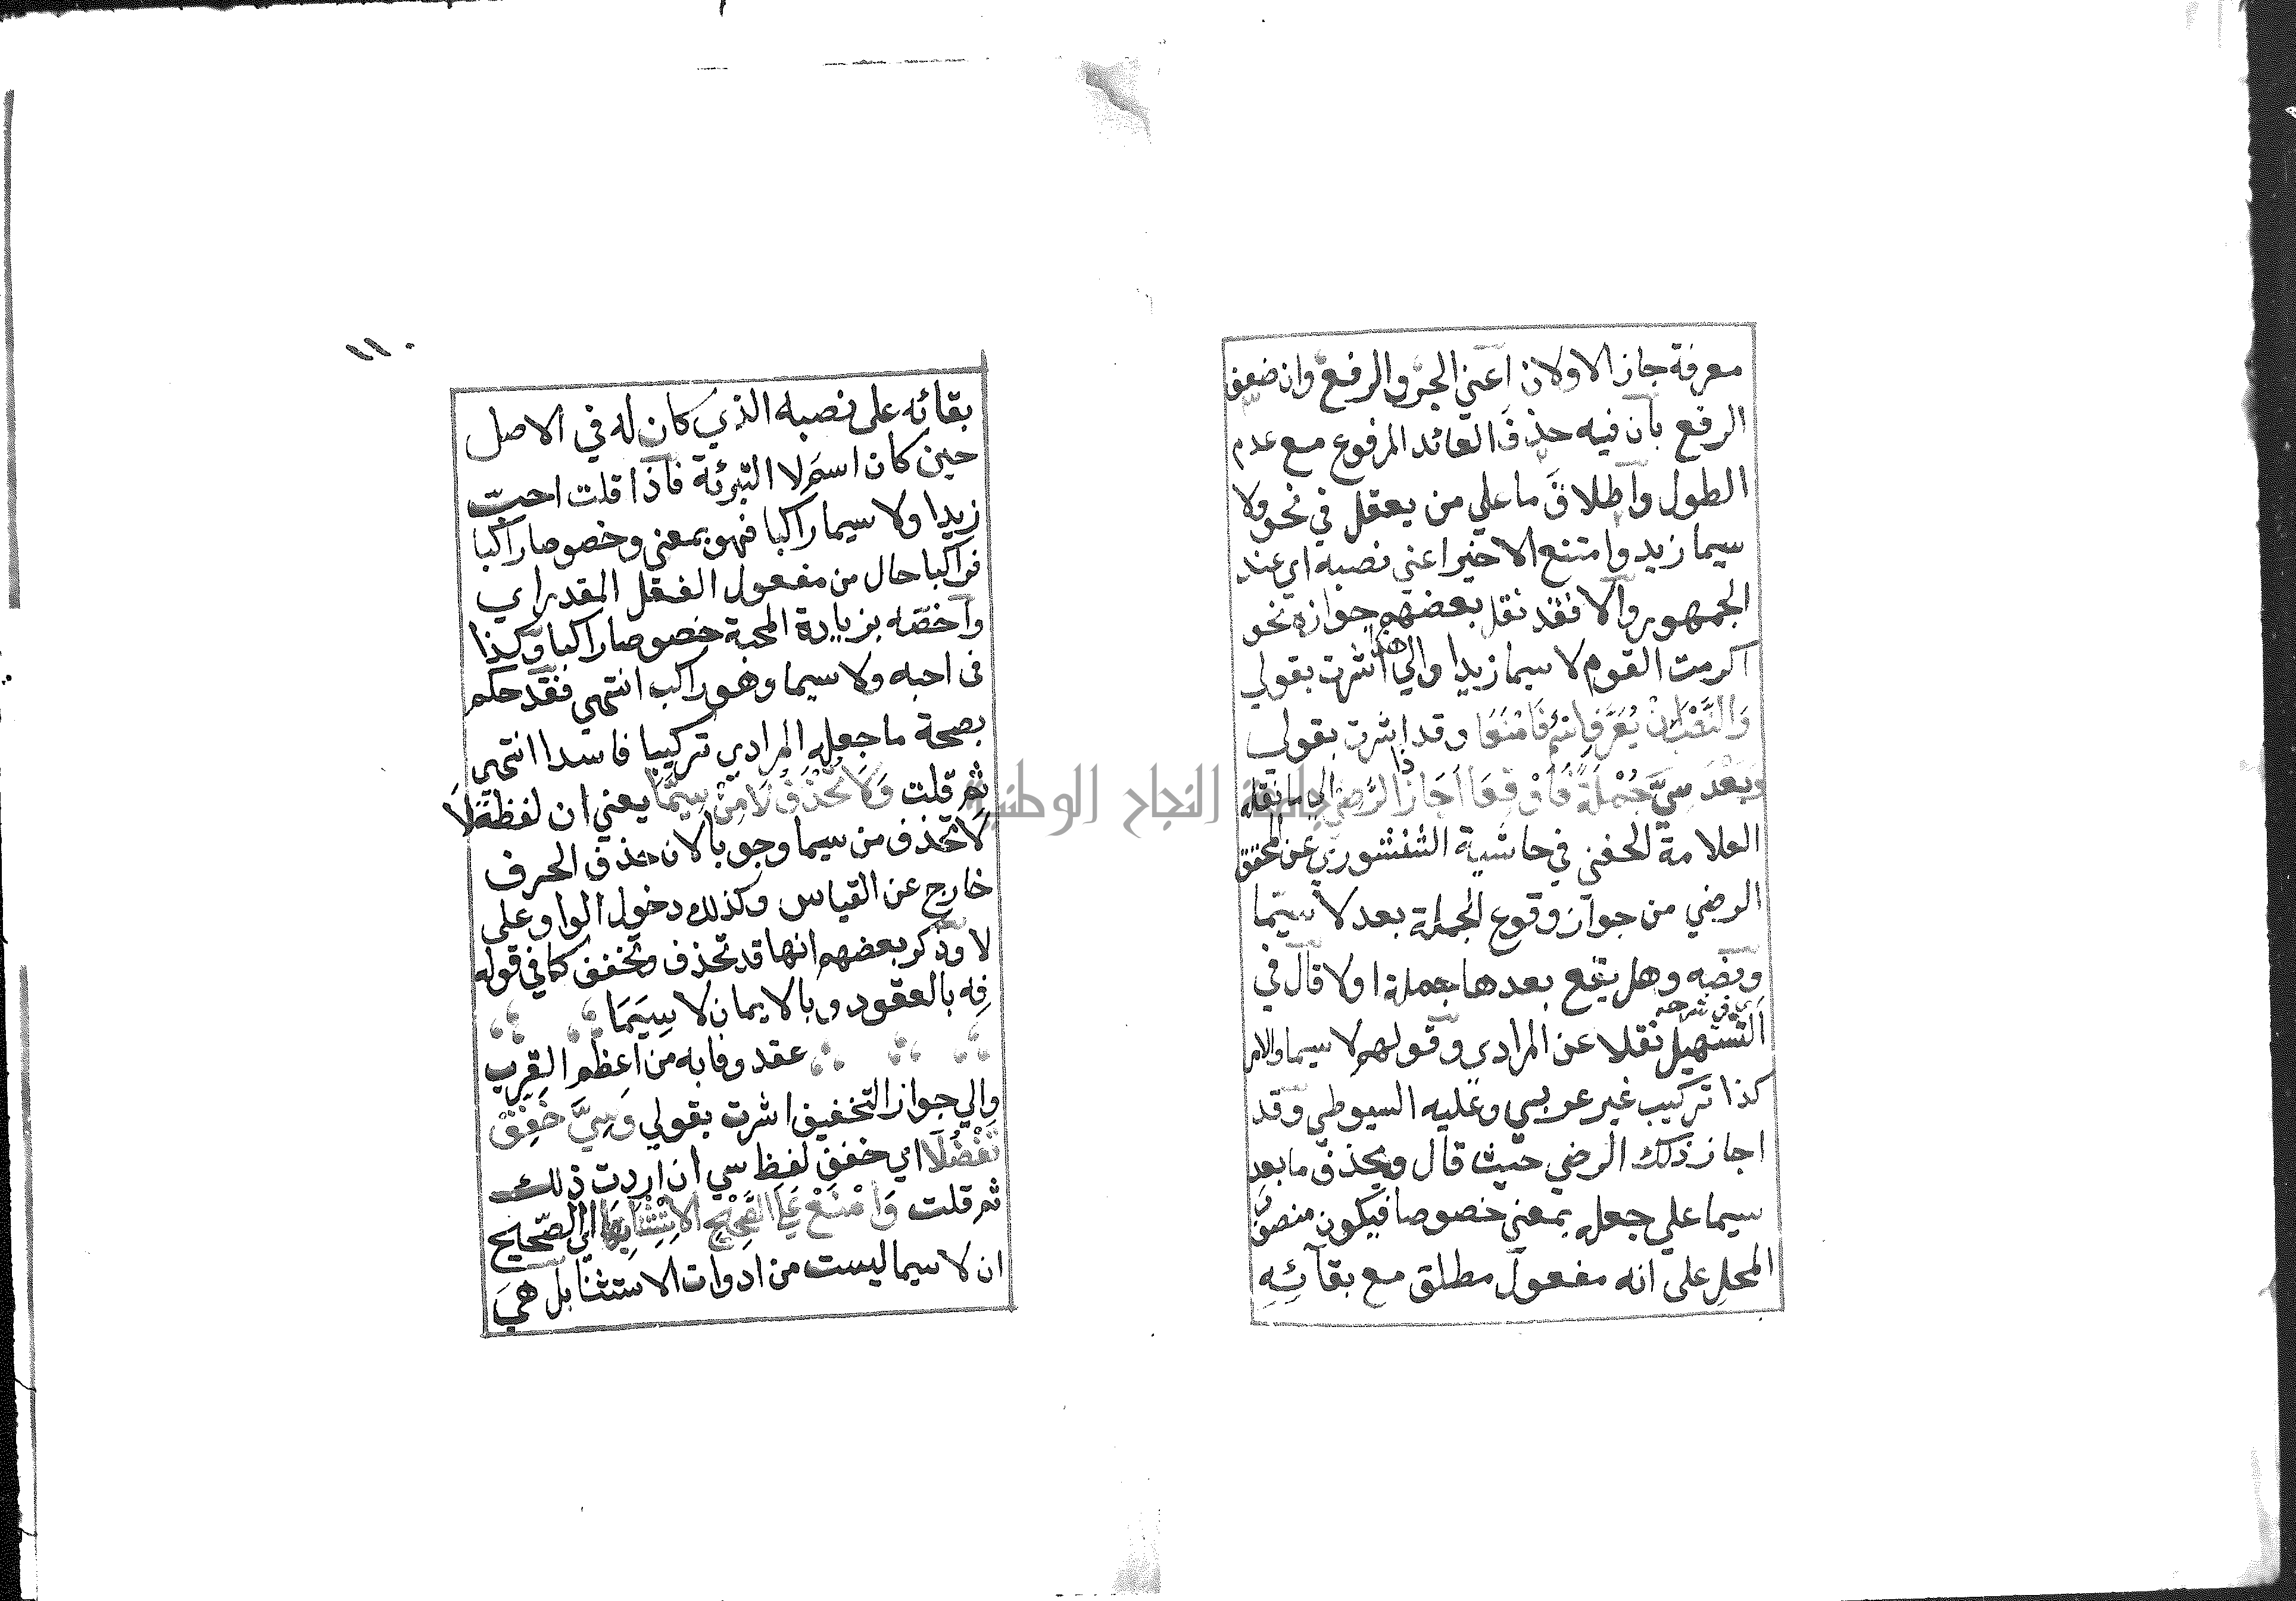 معرفة جاز الاولان اعني الجر والرفع وان ضعف
الرفع بان فيه حذف العائد المرفوع مع عدم
الطول واطلاق ما علي من يعقل في نحو ولا
سيما زيد وامتنع الاخير اعني نصبه اي عند
الجمهور والا فقد نقل بعضهم جوازه نحو
اكرمت القوم لا سيما زيدا والي هذا اشرت بقولي
وَالنَّصْبَ اِنْ يُعَرَّفِ فَامْنَعَا وقد اشرت بقولي
وَبَعْدَ سِيَّ جُمْلَةً فَاَوْقِعَا اَجَازَ ذَا الرَّضِي الي ما نقله
العلامة الحفني في حاشية الشنشوري عن المحقق
الرضي من جواز وقوع الجملة بعد لا سيما
ونصه وهل يقع بعدها جملة اولا قال في
التسهيل اي في شرحه نقلا عن المرادي وقولهم لا سيما والامر
كذا تركيب غير عربي وعليه السيوطي وقد
اجاز ذلك الرضي حيث قال ويحذف ما بعد
سيما علي جعله بمعني خصوصا فيكون منصوب
المحل علي انه مفعول مطلق مع بقآئِهِ
١١٠
بقائه علي نصبه الذي كان له في الاصل
حين كان اسم لا التبرئة فاذا قلت احب
زيدا ولا سيما راكبا فهو بمعني وخصوصا راكبا
فراكبا حال من مفعول الفعل المقدر اي
واخصه بزيادة المحبة خصوصا راكبا وكذا
في احبه ولا سيما وهو راكب انتهي فقد حكم
بصحة ما جعله المرادي تركيبا فاسدا انتهي
ثم قلت وَلَا تَحْذِفْ لَا مِنْ سِيَّمَا يعني ان لفظة لَا
لا تحذف من سيما وجوبا لان حذف الحرف
خارج عن القياس وكذلك دخول الواو علي
لا وذكر بعضهم انها قد تحذف وتخفف كما في قوله
فِه بالعقود وبالايمان لا سِيَمَا
عقد وفا به من اعظم القرب
والي جواز التخفيف اشرت بقولي وَسِيَّ خَفِّفْ
تَفْضُلَا اي خفف لفظ سي ان اردت ذلك
ثم قلت وَامْنَعْ عَلَي الصَّحِيحِ الِاسْتِثْنَا بِهَا اي الصحيح
ان لا سيما ليست من ادوات الاستثنا بل هي
جامعة النجاح الوطنية